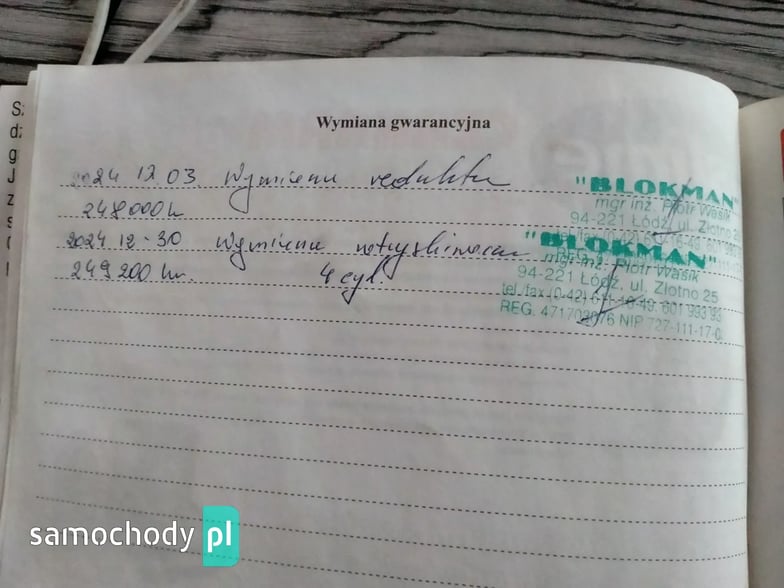 Wymiana gwarancyjna
2024 12.03. Wymiana reduktora
248000k
2024.12-30 Wymiana wtryskiwaczu
249200 km. 4 cyl.
"BLOKMAN"
mgr inż. Piotr Wasik
94-221 Łódź, ul. Złotno 25
"BLOKMAN"
mgr inż. Piotr Wasik
94-221 Łódź, ul. Złotno 25
tel./fax (0-42) 601 993 93
REG. NIP 727-111-17-0
samochody pl